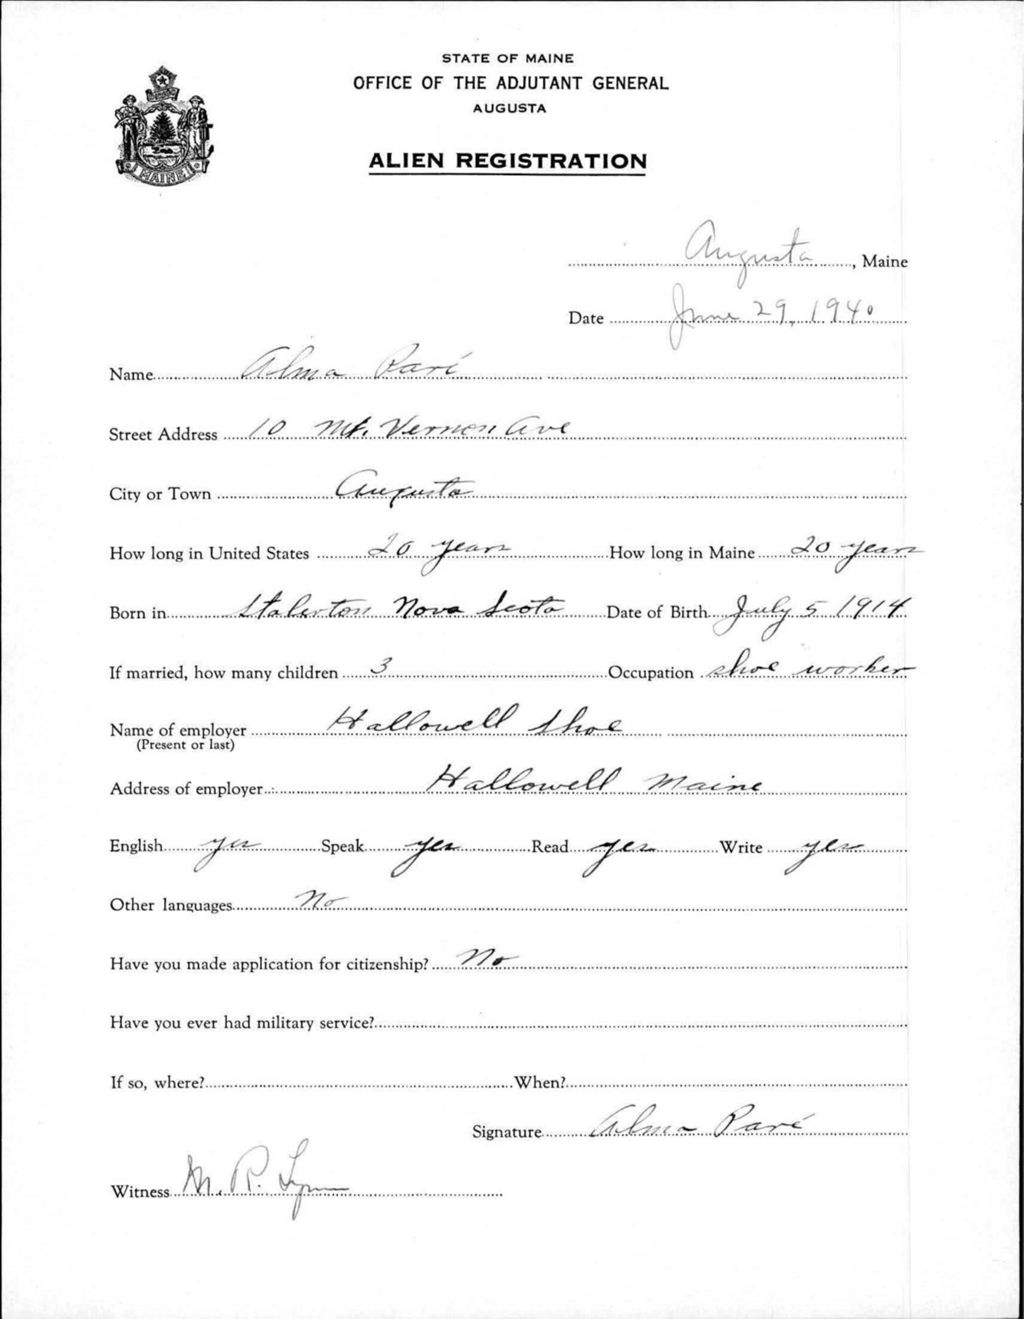 STATE OF MAINE
OFFICE OF THE ADJUTANT GENERAL
AUGUSTA
ALIEN REGISTRATION
MAINE
Augusta, Maine
Date June 29, 1940
Name Alma Paré
Street Address 10 Mt. Vernon Ave
City or Town Augusta
How long in United States 20 years How long in Maine 20 years
Born in Stalerton Nova Scota Date of Birth July 5 1914
If married, how many children 3 Occupation shoe worker
Name of employer Hallowell Shoe
(Present or last)
Address of employer Hallowell Maine
English yes Speak yes Read yes Write yes
Other languages No
Have you made application for citizenship? No
Have you ever had military service?
If so, where? When?
Signature Alma Paré
Witness M. R. Lynn